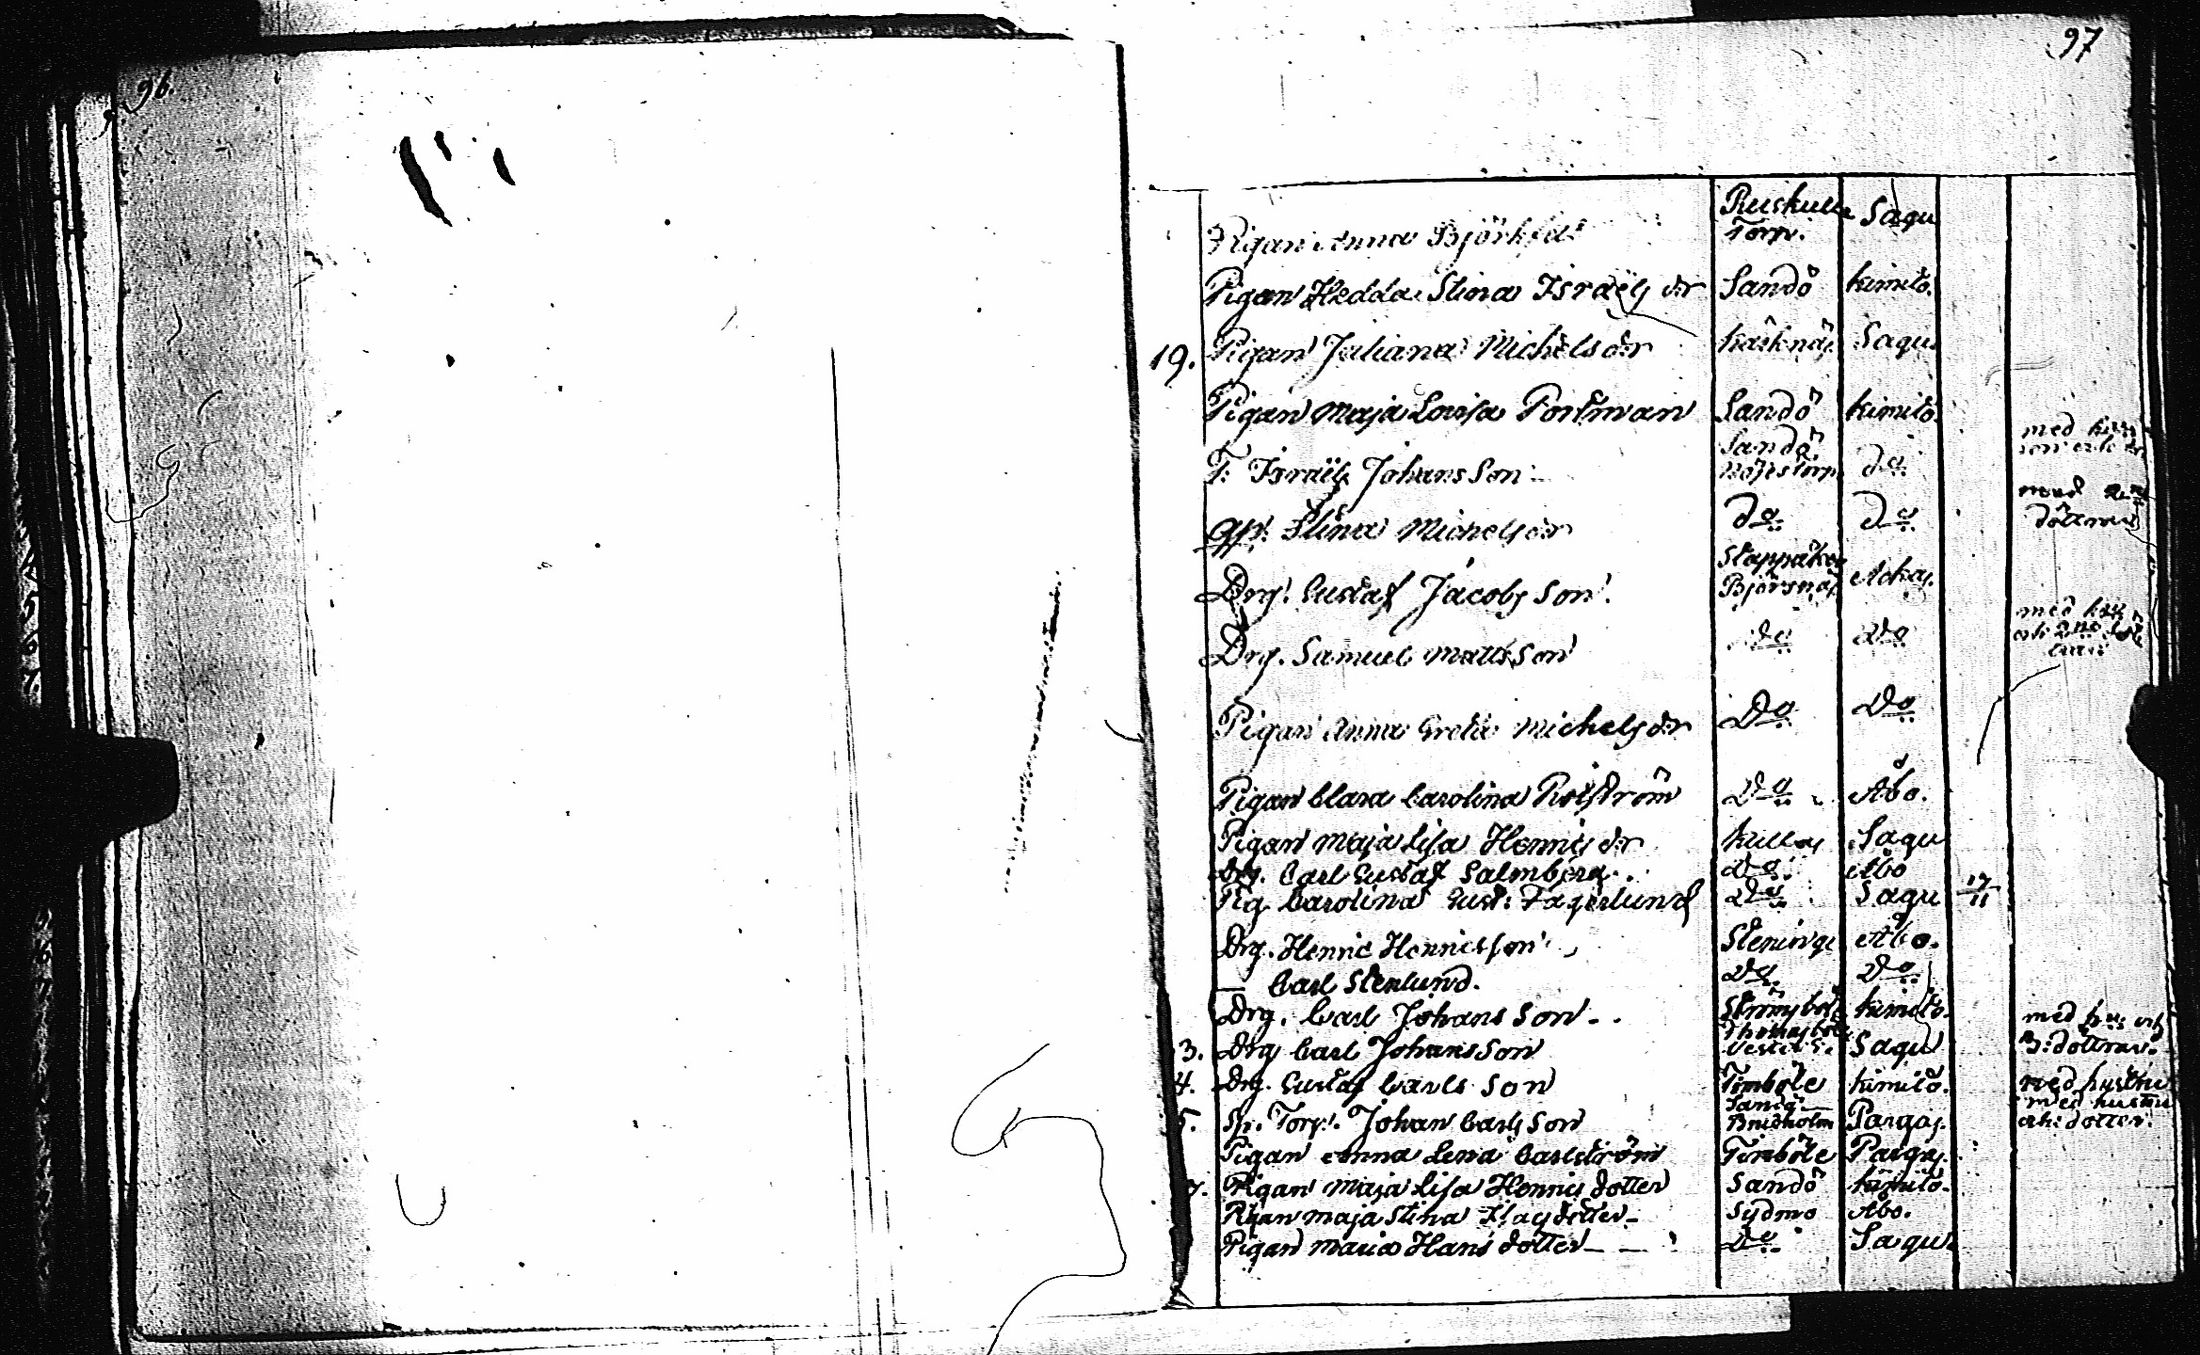 96.
97
Pigan Anna Björk Ruskulla Torp. Sagu
Pigan Hedda Stina Israels dr Sandö Kimito.
19. Pigan Juliana Michels dr Kärknäs Sagu.
Pigan Maja Lovisa Portman Sandö Kimito.
T: Israel Johansson Sandö do med
gf: Stina Michels dr do do med döttrar
Drg. Gustaf Jacobsson Björsnäs
Drg. Samuel Matts Son do do med
Pigan Anna Greta Michels dr Do Do
Pigan Clara Carolina Do Åbo.
Pigan Maja Lisa Henrics dr Kullas Sagu
Drg. Carl Gustaf Salmberg Do Åbo
Pig. Carolina Gust: Fagerlund Do Sagu 17/11
Drg. Henric Henricsson Steninge Åbo.
Carl Stenlund. Do Do
Drg. Carl Johansson Strömsböle Kimito. med
3. Drg Carl Johansson Sagu 3: döttrar.
4. Drg. Gustaf Carls Son Timböle Kimito. med hustru
5. Torp. Johan Carls Son Sandö Pargas. med hustru och dotter.
Pigan Anna Lena Carlström Timböle Pargas.
7. Pigan Maja Lisa Henrics dotter Sandö Kimito.
Pigan Maja Stina dotter Sydmo Åbo.
Pigan Maria Hans dotter Do Sagu